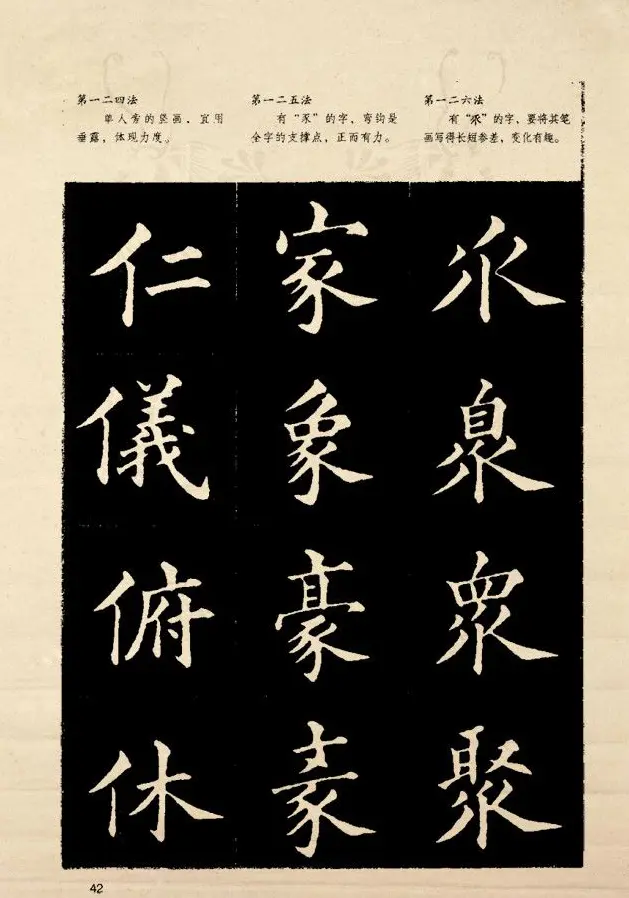 第一二四法
单人旁的竖画，宜用
垂露，体现力度。
第一二五法
有“豕”的字，弯钩是
全字的支撑点，正而有力。
第一二六法
有“乑”的字，要将其笔
画写得长短参差，变化有趣。
仁
儀
俯
休
家
象
豪
乑
臮
眾
聚
42